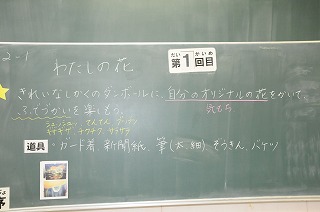 2-1
わたしの花
だい かいめ
第1回目
きれいなしかくのダンボールに、自分のオリジナルの花をかいて、
気もち
ふでづかいを楽しもう。
道具
カード着、新聞紙、筆(太、細)、ぞうきん、バケツ